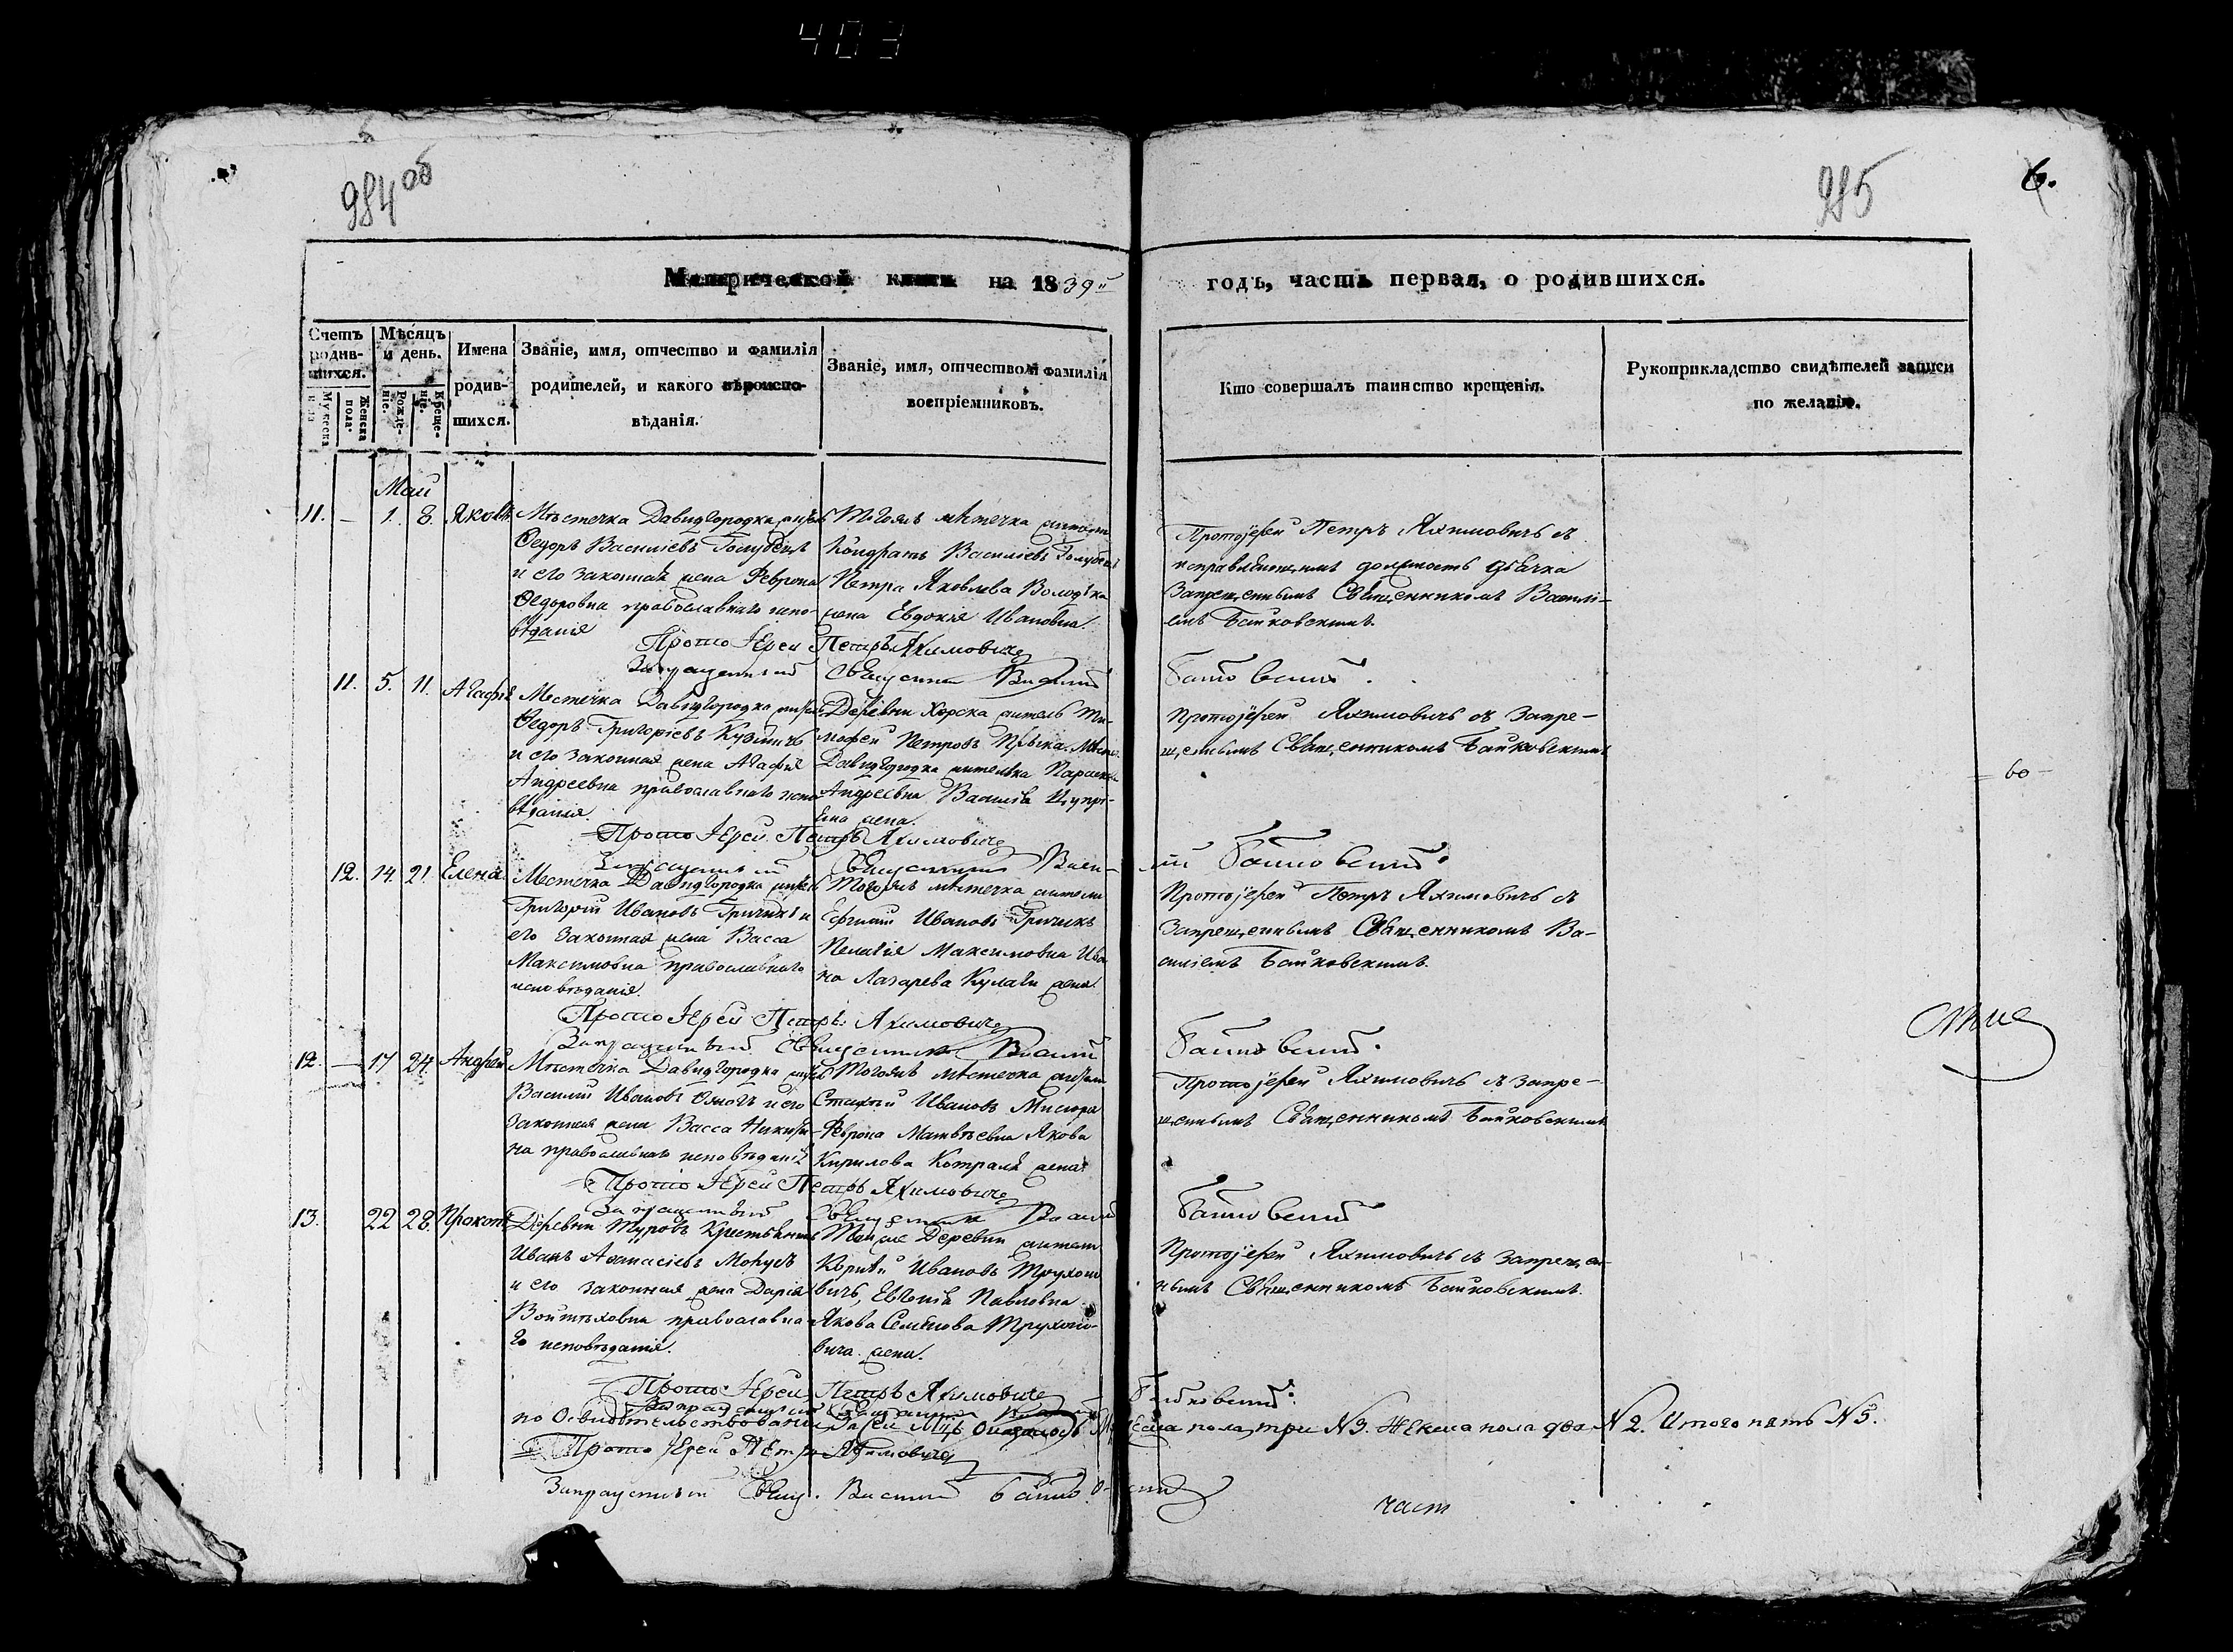 403
984 об
985
6.
Метрической книги на 1839й годъ, часть первая, о родившихся.
Счетъ родив-шихся.
Мужеска пола
Женска пола
Мѣсяцъ и день.
Рожде-ніе.
Креще-ніе.
Имена родив-шихся.
Званіе, имя, отчество и фамилія родителей, и какого вѣроиспо-вѣданія.
Званіе, имя, отчество и фамилія воспріемниковъ.
Кто совершалъ таинство крещенія.
Рукоприкладство свидѣтелей записи по желанію.
Май
11. — 1. 8. Яковъ
Мѣстечка Давидгородка житель
Ѳедоръ Василіевъ Голубецъ
и его законная жена Феврона
Ѳедоровна православнаго испо-
вѣданія
Тогожъ мѣстечка жители
Кондратъ Василіевъ Голубецъ
Петра Яковлева
жена Евдокія Ивановна.
Протоіерей Петръ Яхимовичъ съ
исправляющимъ должность дьячка
Запрещеннымъ Священникомъ Василі-
емъ Байковскимъ.
Протоіерей Петръ Яхимовичъ
Запрещенный Священникъ Василій Байковскій.
11. 5. 11. Агафія
Местечка Давидгородка житель
Ѳедоръ Григоріевъ
и его законная жена Агафія
Андреевна православнаго испо
вѣданія.
Деревни Хорска житель Ти-
мофей Петровъ
Давидгородка жителька
Андреевна Василія Цупрі-
жена.
Протоіерей Яхимовичъ съ Запре-
щеннымъ Священникомъ Байковскимъ
60
Протоіерей Петръ Яхимовичъ
Запрещенный Священникъ Василій Байковскій.
12. 14. 21. Елена.
Местечка Давидгородка житель
Григорій Ивановъ и
его законная жена Васса
Максимовна православнаго
исповѣданія.
Тогожъ мѣстечка жители
Ивановъ
Пелагія Максимовна Ива
на Лазарева жена.
Протоіерей Петръ Яхимовичъ съ
Запрещеннымъ Священникомъ Ва-
силіемъ Байковскимъ.
Протоіерей Петръ Яхимовичъ
Запрещенный Священникъ Василій Байковскій.
12. — 17 24. Андрей
Мѣстечка Давидгородка житель
Василій Ивановъ и его
законная жена Васса
на православнаго исповѣданія
Тогожъ мѣстечка жители
Ивановъ Мисюра
Феврона Матвѣевна Якова
Кирилова жена.
Протоіерей Яхимовичъ съ запре-
щеннымъ Священникомъ Байковскимъ
Протоіерей Петръ Яхимовичъ
Запрещенный Священникъ Василій Байковскій
13. 22 28. Прокопій
Деревни Туровъ Крестьянинъ
Иванъ Аѳанасіевъ
и его законная жена Дарія
Войтѣховна православна-
го исповѣданія.
Той же Деревни жители
Ивановъ Трухоно
вичъ, Евгенія Павловна
Якова Семенова Трухоно-
вича жена.
Протоіерей Яхимовичъ съ запрещен-
нымъ Священникомъ Байковскимъ.
Протоіерей Петръ Яхимовичъ
Запрещенный Священникъ Василій Байковскій.
по Освидѣтельствованіи За сей М-цъ Оказалось Мужеска пола три №3. Женска пола два №2. Итого пять №5.
Протоіерей Петръ Яхимовичъ
Запрещенный Свящ. Василій Байковскій
част